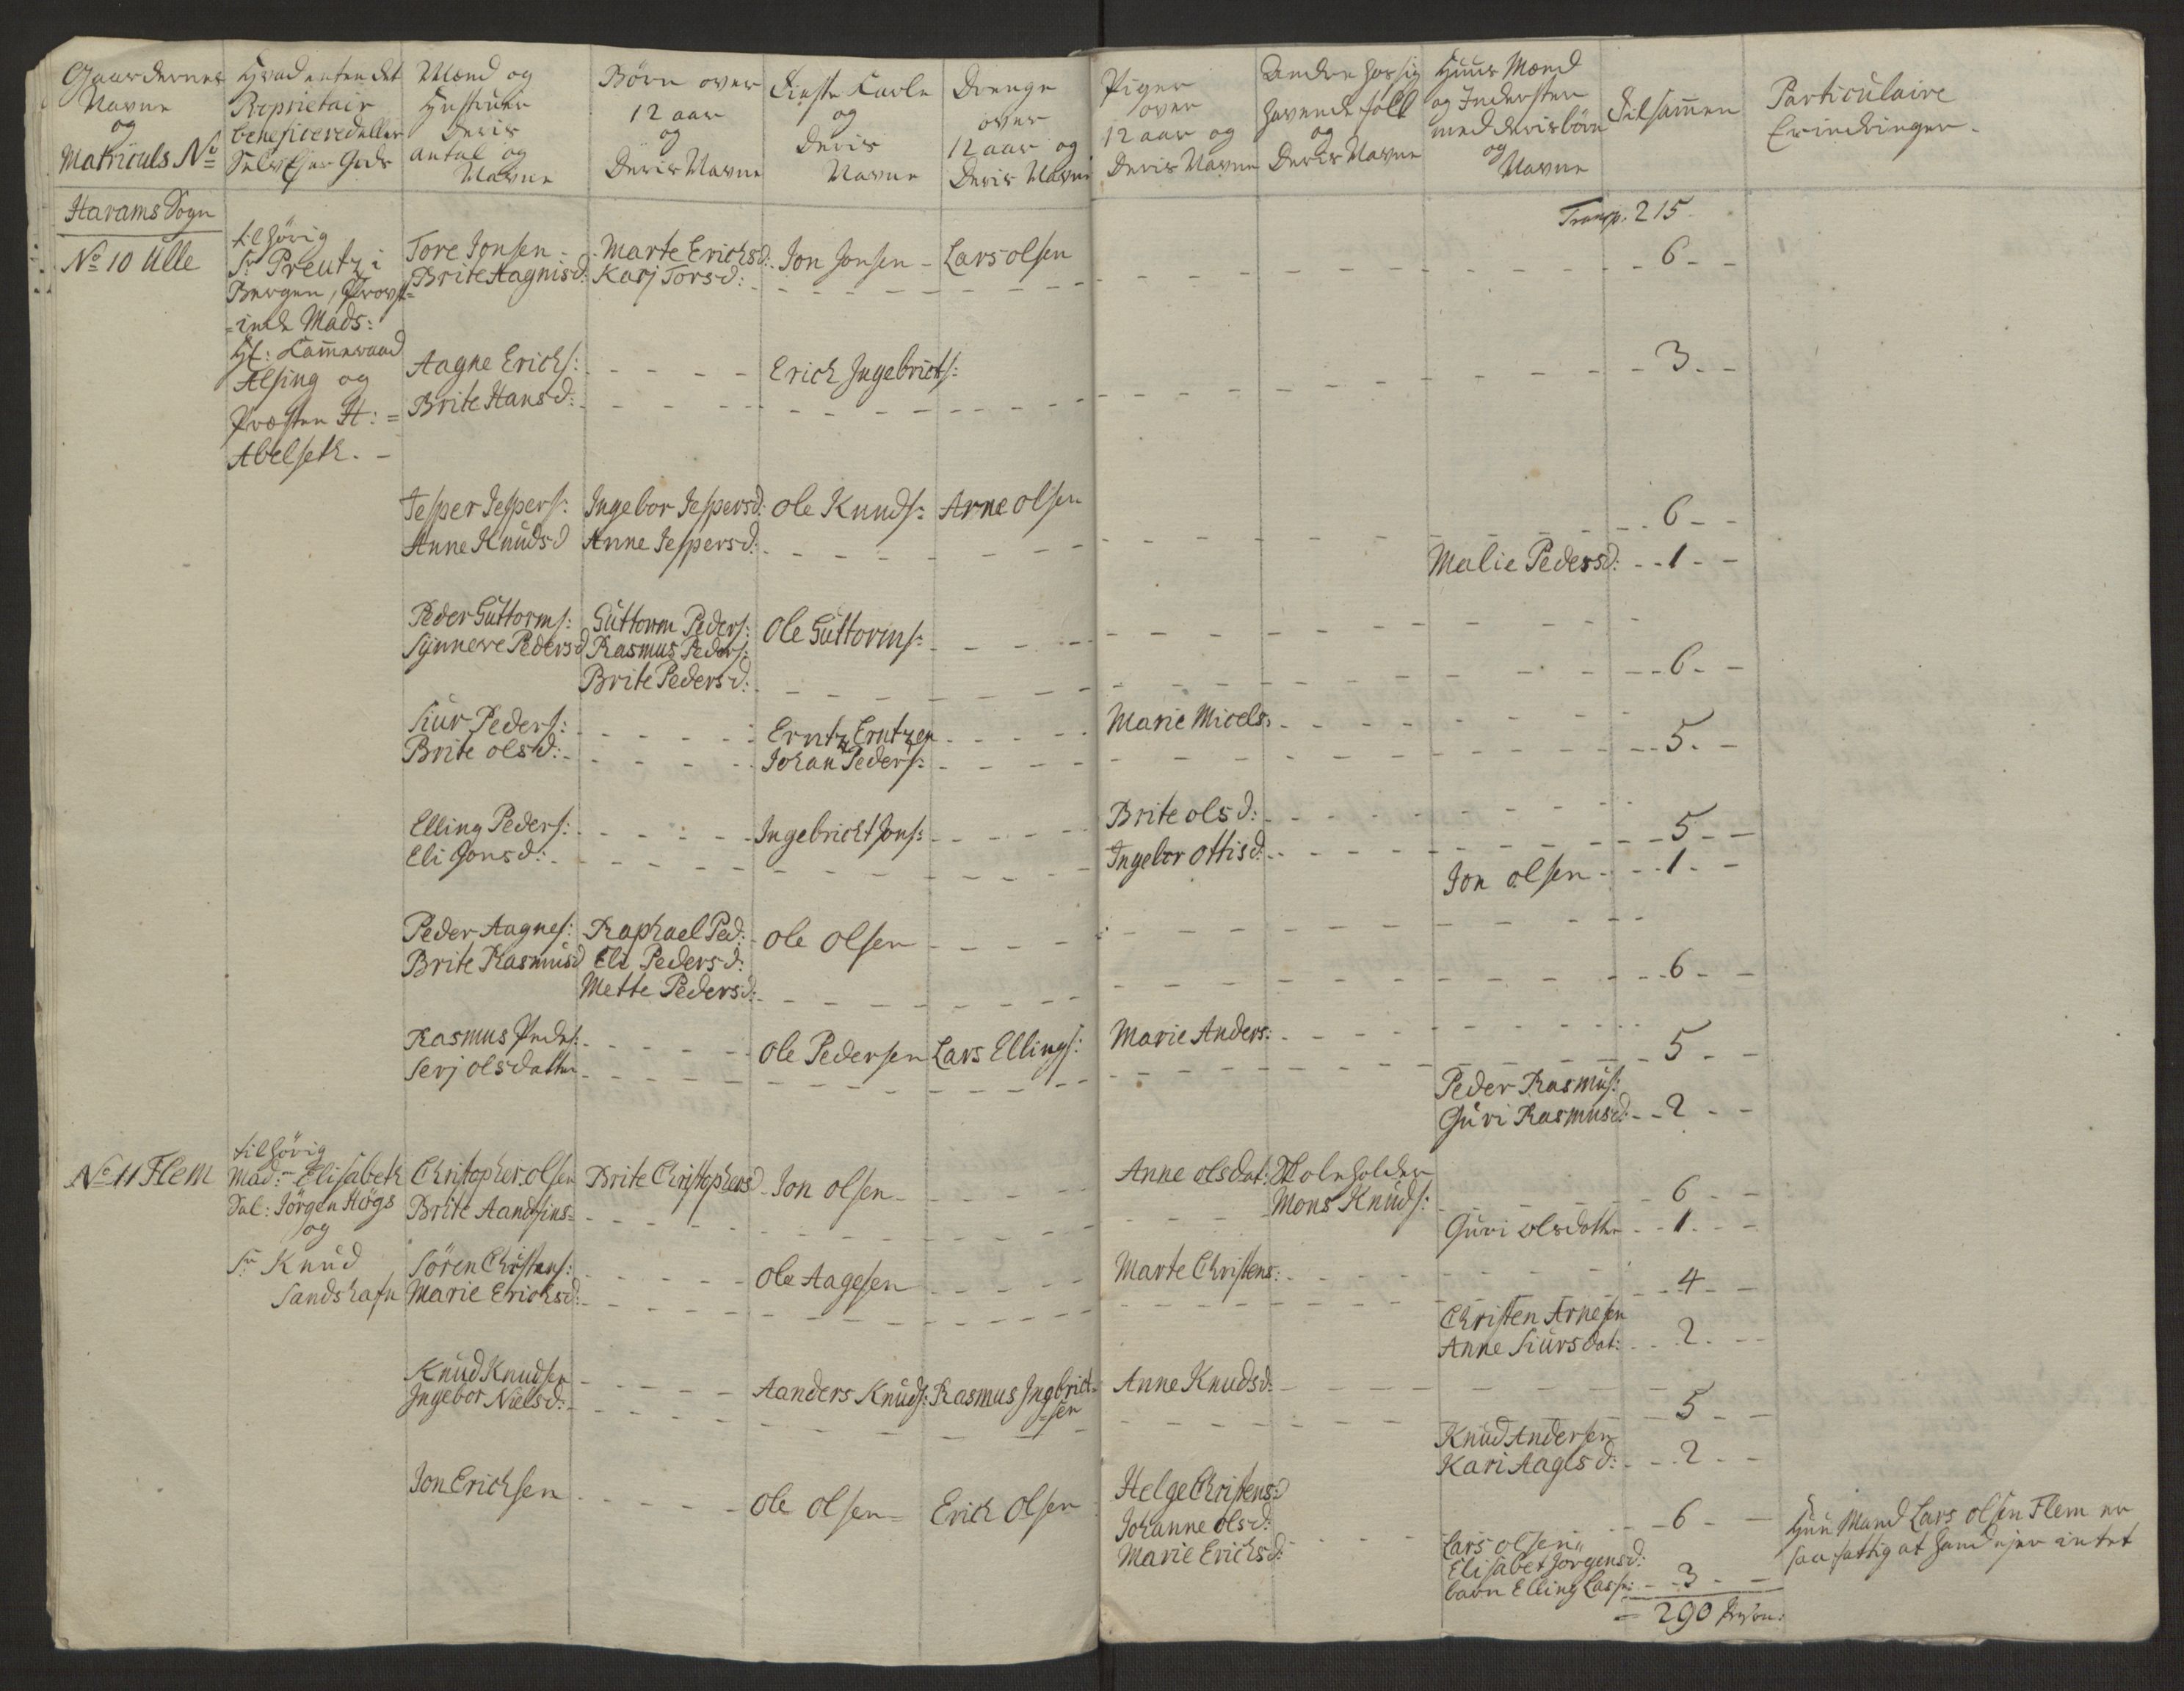 Gaardernes Navne og Matriculs No
Hvad enten det Proprietair beneficered eller Selv Ejer Gods
Mænd og Hustruer Deris antal og Navne
Børn over 12 aar og Deris Navne
Tieste Karle og Deris Navne
Drenge over 12 aar og Deris Navne
Piger over 12 aar og Deris Navne
Andre hos sig havende folk og Deris Navne
Huus Mænd og Indersten med deris børn og Navne
Tilsamen
Particulaire Erindringer
Harams Sogn
Transp. 215
No 10 Ulle
tilhörig
Sr Preutz i
Bergen, Provst-
inde Mads:
Hf: Cammeraad
Alsing og
Præsten H: =
Abelseth. -
Tore Jonsen - Marte Erichsd: Jon Jonsen - Lars olsen
Brite Aagnisd: Karj Torsd: - - 6 - -
Aagne Erichs: - - Erich Ingebricts: - - 3 - -
Brite Hansd:
Jesper Jespers: Ingebor Jespersd: Ole Knuds: Arne olsen - - 6 - -
Anne Knudsd Anne Jespersd: - -
Malie Pedersd: - - 1 - -
Peder Guttorms: Guttorm Peders: Ole Guttorms: - -
Synnere Pedersd Rasmus Peders:
Brite Pedersd: - - 6 - -
Siur Peders: - - Erntz Erntzen - - Marie Micels: - -
Brite olsd: - - Johan Peders: - - 5 - -
Elling Peders: - - Ingebricht Jons: - - Brite olsd: - -
Eli Jonsd: - - Ingebor Ottisd: - - 5 - -
Jon olsen - - 1 - -
Peder Aagnes: Raphael Ped: Ole Olsen - -
Brite Rasmusd Eli Pedersd:
Mette Pedersd: - - 6 - -
Rasmus Peders: - - Ole Pedersen Lars Ellings: Marie Anders: - -
Serj olsdatter - - 5 - -
Peder Rasmus:
Guri Rasmusd: - - 2 - -
No 11 Flem
tilhörig
Mad: Elisabeth
Sal: Jörgen Högs
og
Sr Knud
Sandshafn
Christopher olsen Brite Christophersd Jon olsen - - Anne olsdat: Skoleholder
Brite Aandsins= - - Mons Knuds: - - 6 - -
Guri olsdatter - - 1 - -
Sören Christens: - - Ole Aagesen - - Marte Christens: - -
Marie Erichsd: - - 4 - -
Christen Arnesen
Anne Siursdat: - - 2 - -
Knud Knudsen - - Aanders Knuds: Rasmus Ingbrict= Anne Knudsd: - -
Ingebor Nielsd: - - =sen - - 5 - -
Knud Andersen
Kari Aagesd: - - 2 - -
Jon Erichsen - - Ole Olsen = Erich Olsen Helge Christensd
Johanne olsd:
Marie Erichsd: - - 6 - -
Lars olsen
Elisabet Jörgensd:
barn Elling Lars: - - 3 - -
Huus Mand Lars olsen Flem er
saa fattig at hand ejer intet
= 290 Persn: